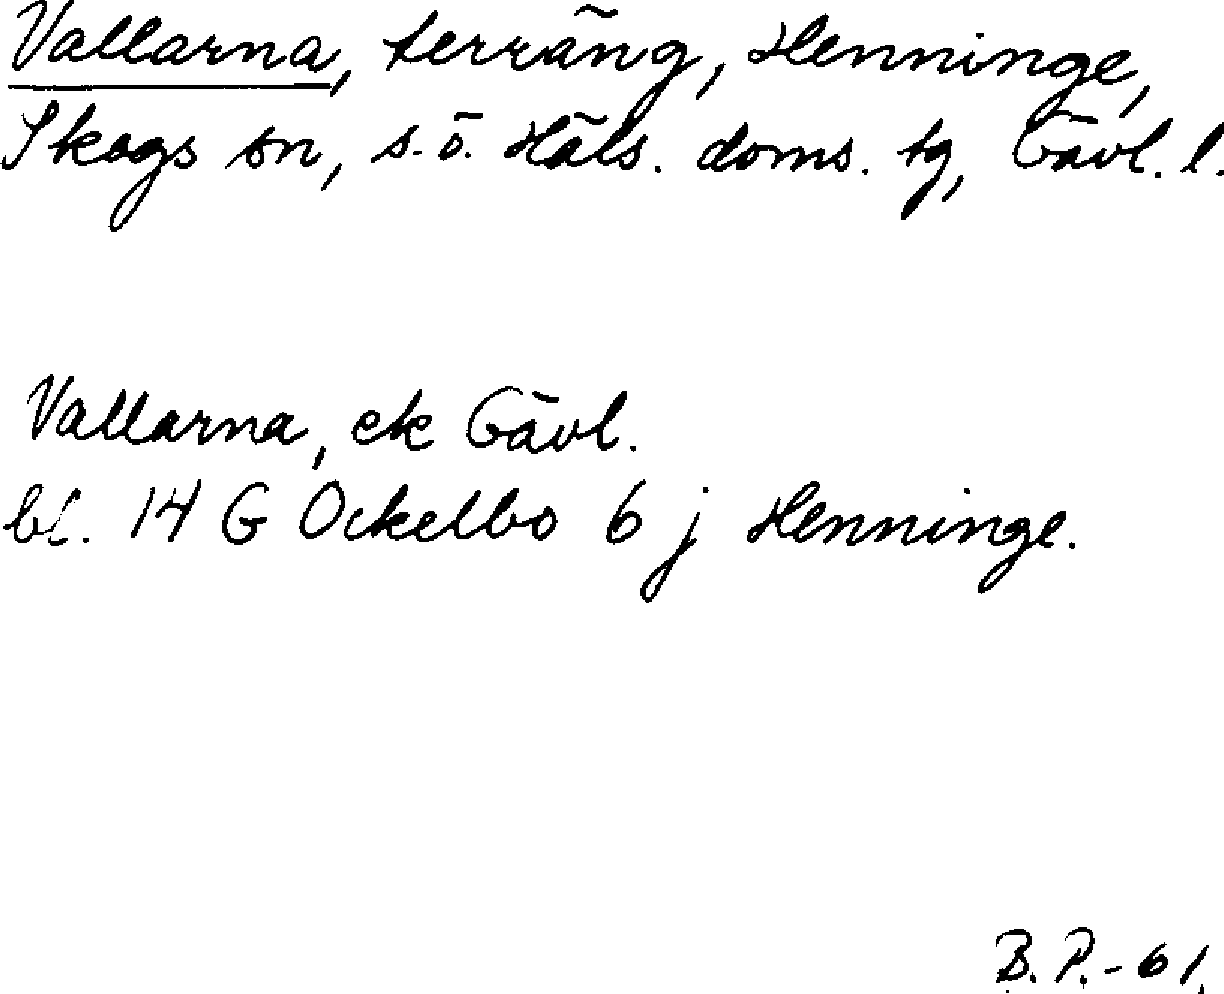 Vallarna, terräng, Henninge,
Skogs sn, s.ö. Häls. doms. tg, Gävl. l.
Vallarna, ek Gävl.
bl. 14 G Ockelbo 6 j Henninge.
B. P. - 61.